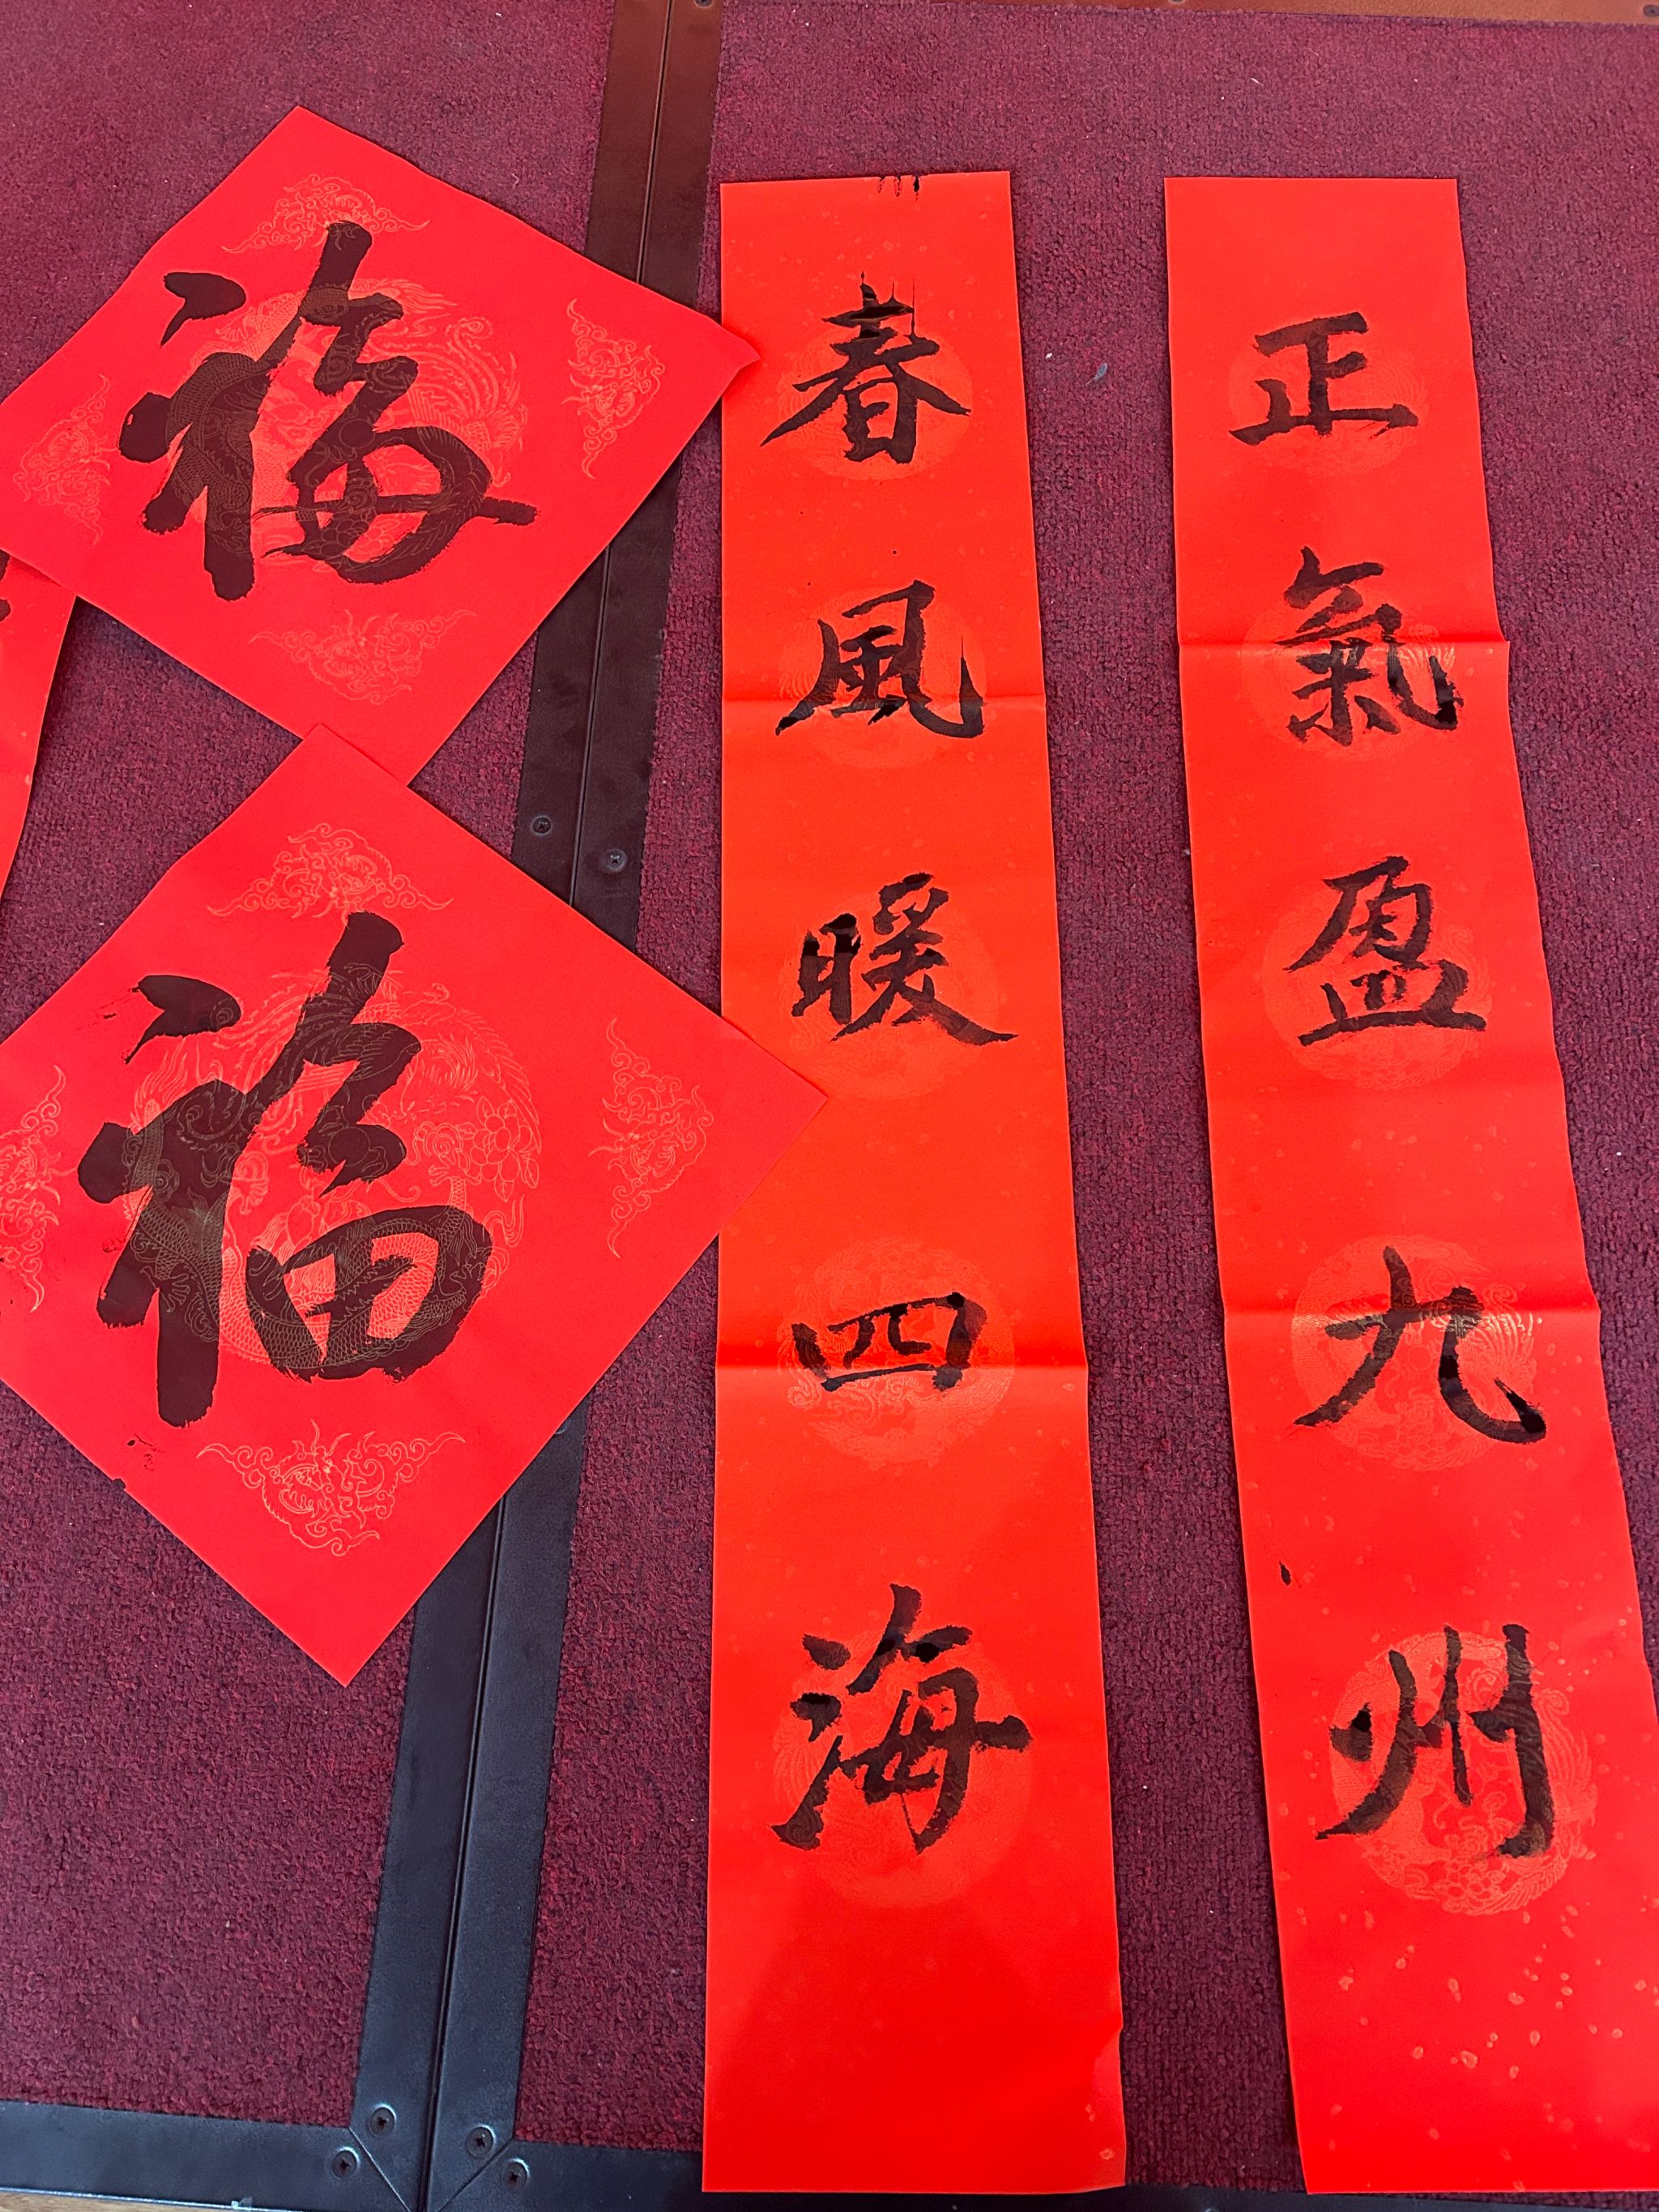 正氣盈九州
春風暖四海
福
福